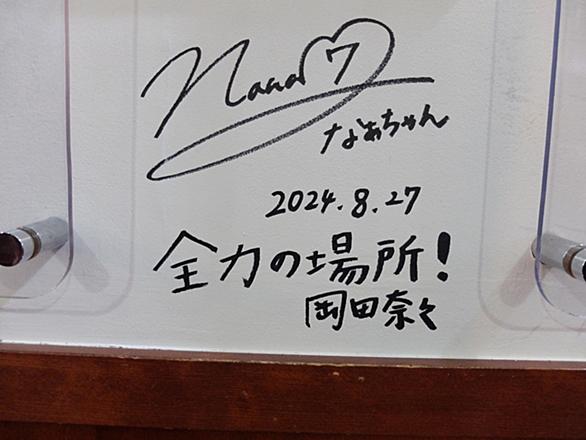 Nana♡7
なぁちゃん
2024.8.27
全力の場所!
岡田奈々